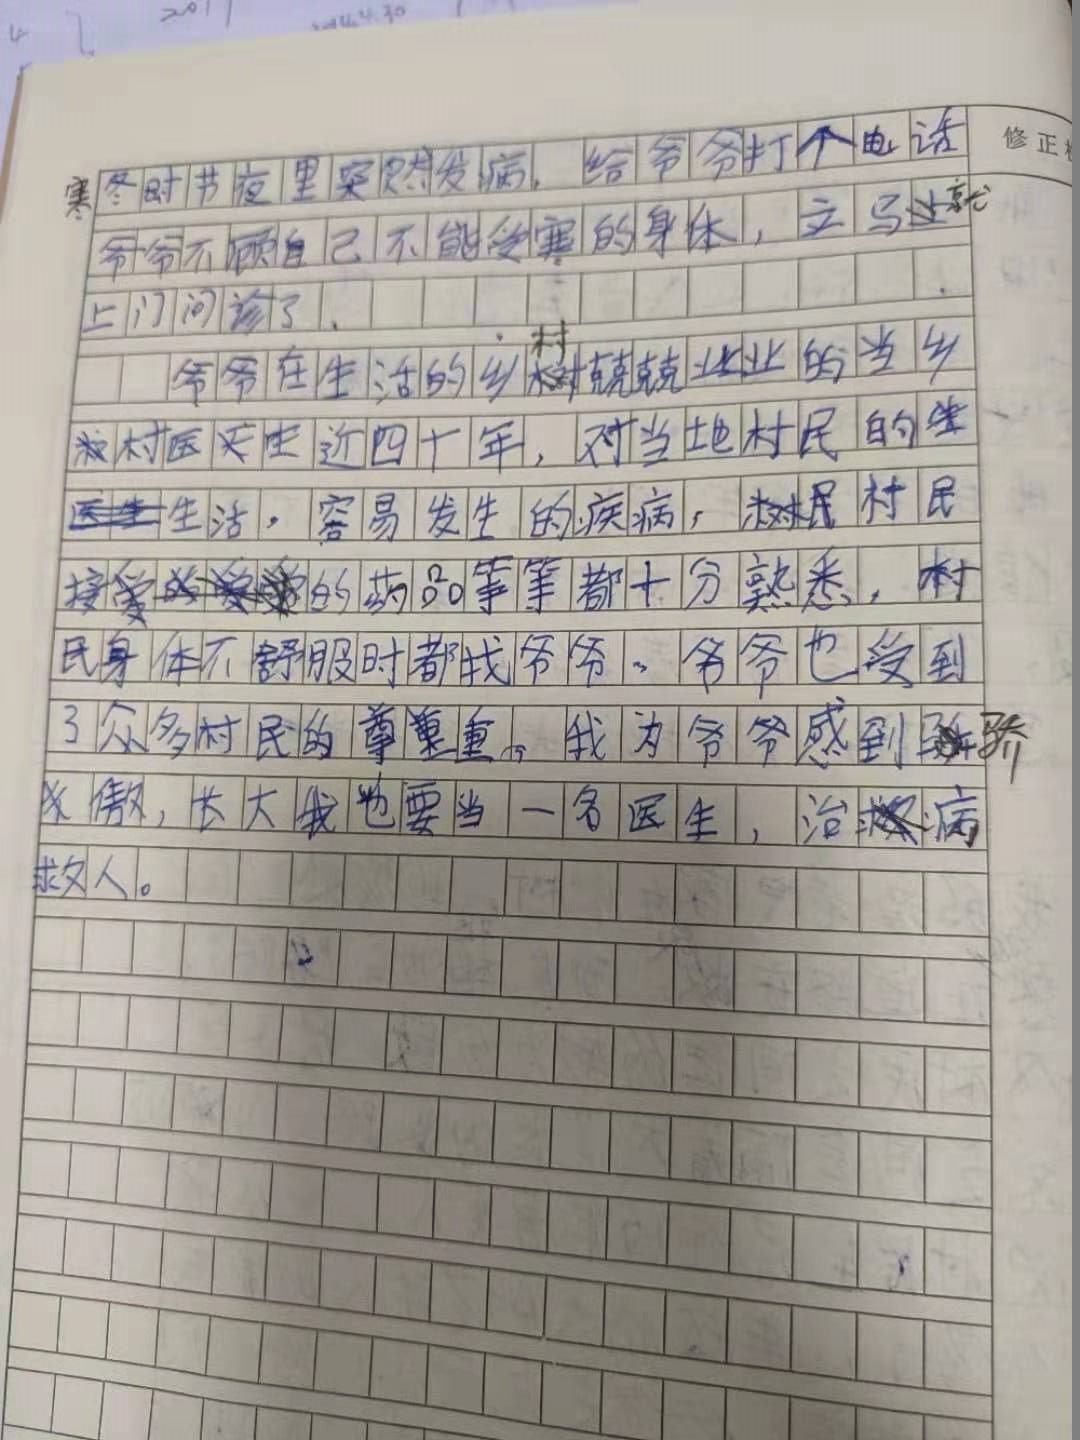 2011
修正
寒冬时节夜里突然发病，给爷爷打个电话
爷爷不顾自己不能受寒的身体，立马就
上门问诊了．
爷爷在生活的乡村兢兢业业的当乡
村医生近四十年，对当地村民的
生活，容易发生的疾病，村民
接受的药品等等都十分熟悉，村
民身体不舒服时都找爷爷。爷爷也受到
了众多村民的尊重，我为爷爷感到骄
傲，长大我也要当一名医生，治病
救人。